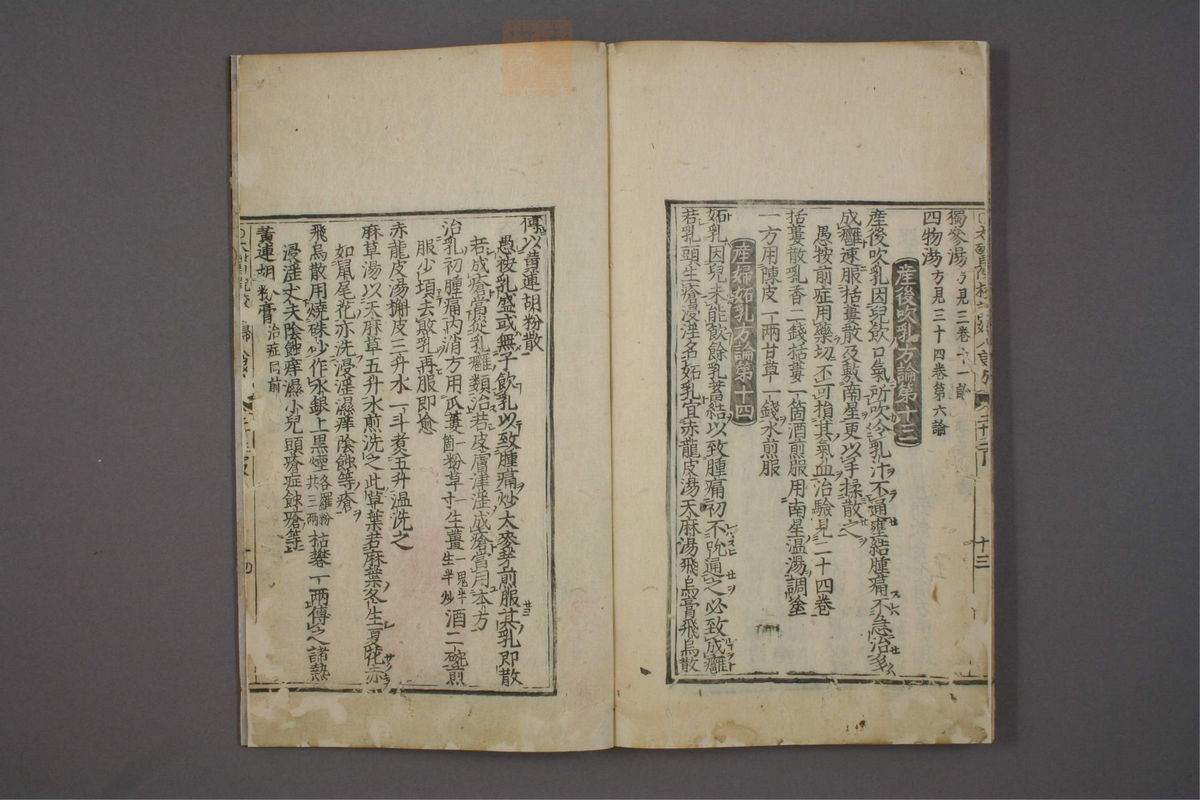 獨參湯方見三卷十一論
四物湯方見三十四卷第六論
産後吹乳方論第十三
産後吹乳因兒飲口氣所吹令乳汁不通壅結腫痛不急治多
成癰速服括蔞散及敷南星更以手揉散之
愚按前症用藥切不可損其氣血治驗見二十四卷
括蔞散乳香二錢括蔞一箇酒煎服用南星温湯調塗
一方用陳皮一兩甘草一錢水煎服
産婦妬乳方論第十四
妬乳因兒未能飲餘乳蓄結以致腫痛初不吮通之必致成癰
若乳頭生瘡浸淫名妬乳宜赤龍皮湯天麻湯飛烏膏飛烏散
十三
傅以黄連胡粉散
愚按乳盛或無子飲乳以致腫痛炒大麥芽煎服其乳即散
若成瘡當從乳癰類治若皮膚津淫成瘡當用本方
治乳初腫痛内消方用瓜蔞一箇粉草一寸生薑一塊半生半炒酒二碗煎
服少頃去敗乳再服即愈
赤龍皮湯槲皮三升水一斗煮五升温洗之
麻草湯以天麻草五升水煎洗之此草葉若麻葉冬生夏花赤
如鼠尾花亦洗浸淫濕痒陰蝕等瘡
飛烏散用燒硃砂作水銀上黒煙各羅粉共三兩枯礬一兩傅之諸熱
浸淫丈夫陰蝕痒濕小兒頭瘡疳蝕瘡等
黄連胡粉膏治症同前